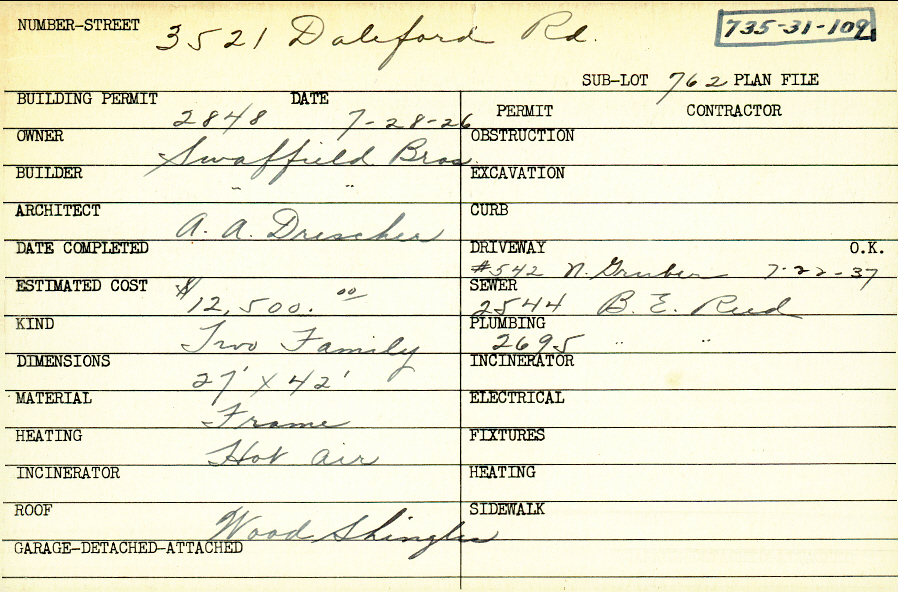 NUMBER-STREET 3521 Daleford Rd. 735-31-109
SUB-LOT 762 PLAN FILE
BUILDING PERMIT 2848 DATE 7-28-26
PERMIT CONTRACTOR
OWNER Swaffield Bros.
OBSTRUCTION
BUILDER " "
EXCAVATION
ARCHITECT A. A. Drescher
CURB
DATE COMPLETED
DRIVEWAY #542 N. Gruber 7-22-37 O.K.
ESTIMATED COST $12,500.00
SEWER 2544 B. E. Reed
KIND Two Family
PLUMBING 2695 " "
DIMENSIONS 27' X 42'
INCINERATOR
MATERIAL Frame
ELECTRICAL
HEATING Hot air
FIXTURES
INCINERATOR
HEATING
ROOF Wood Shingles
SIDEWALK
GARAGE-DETACHED-ATTACHED